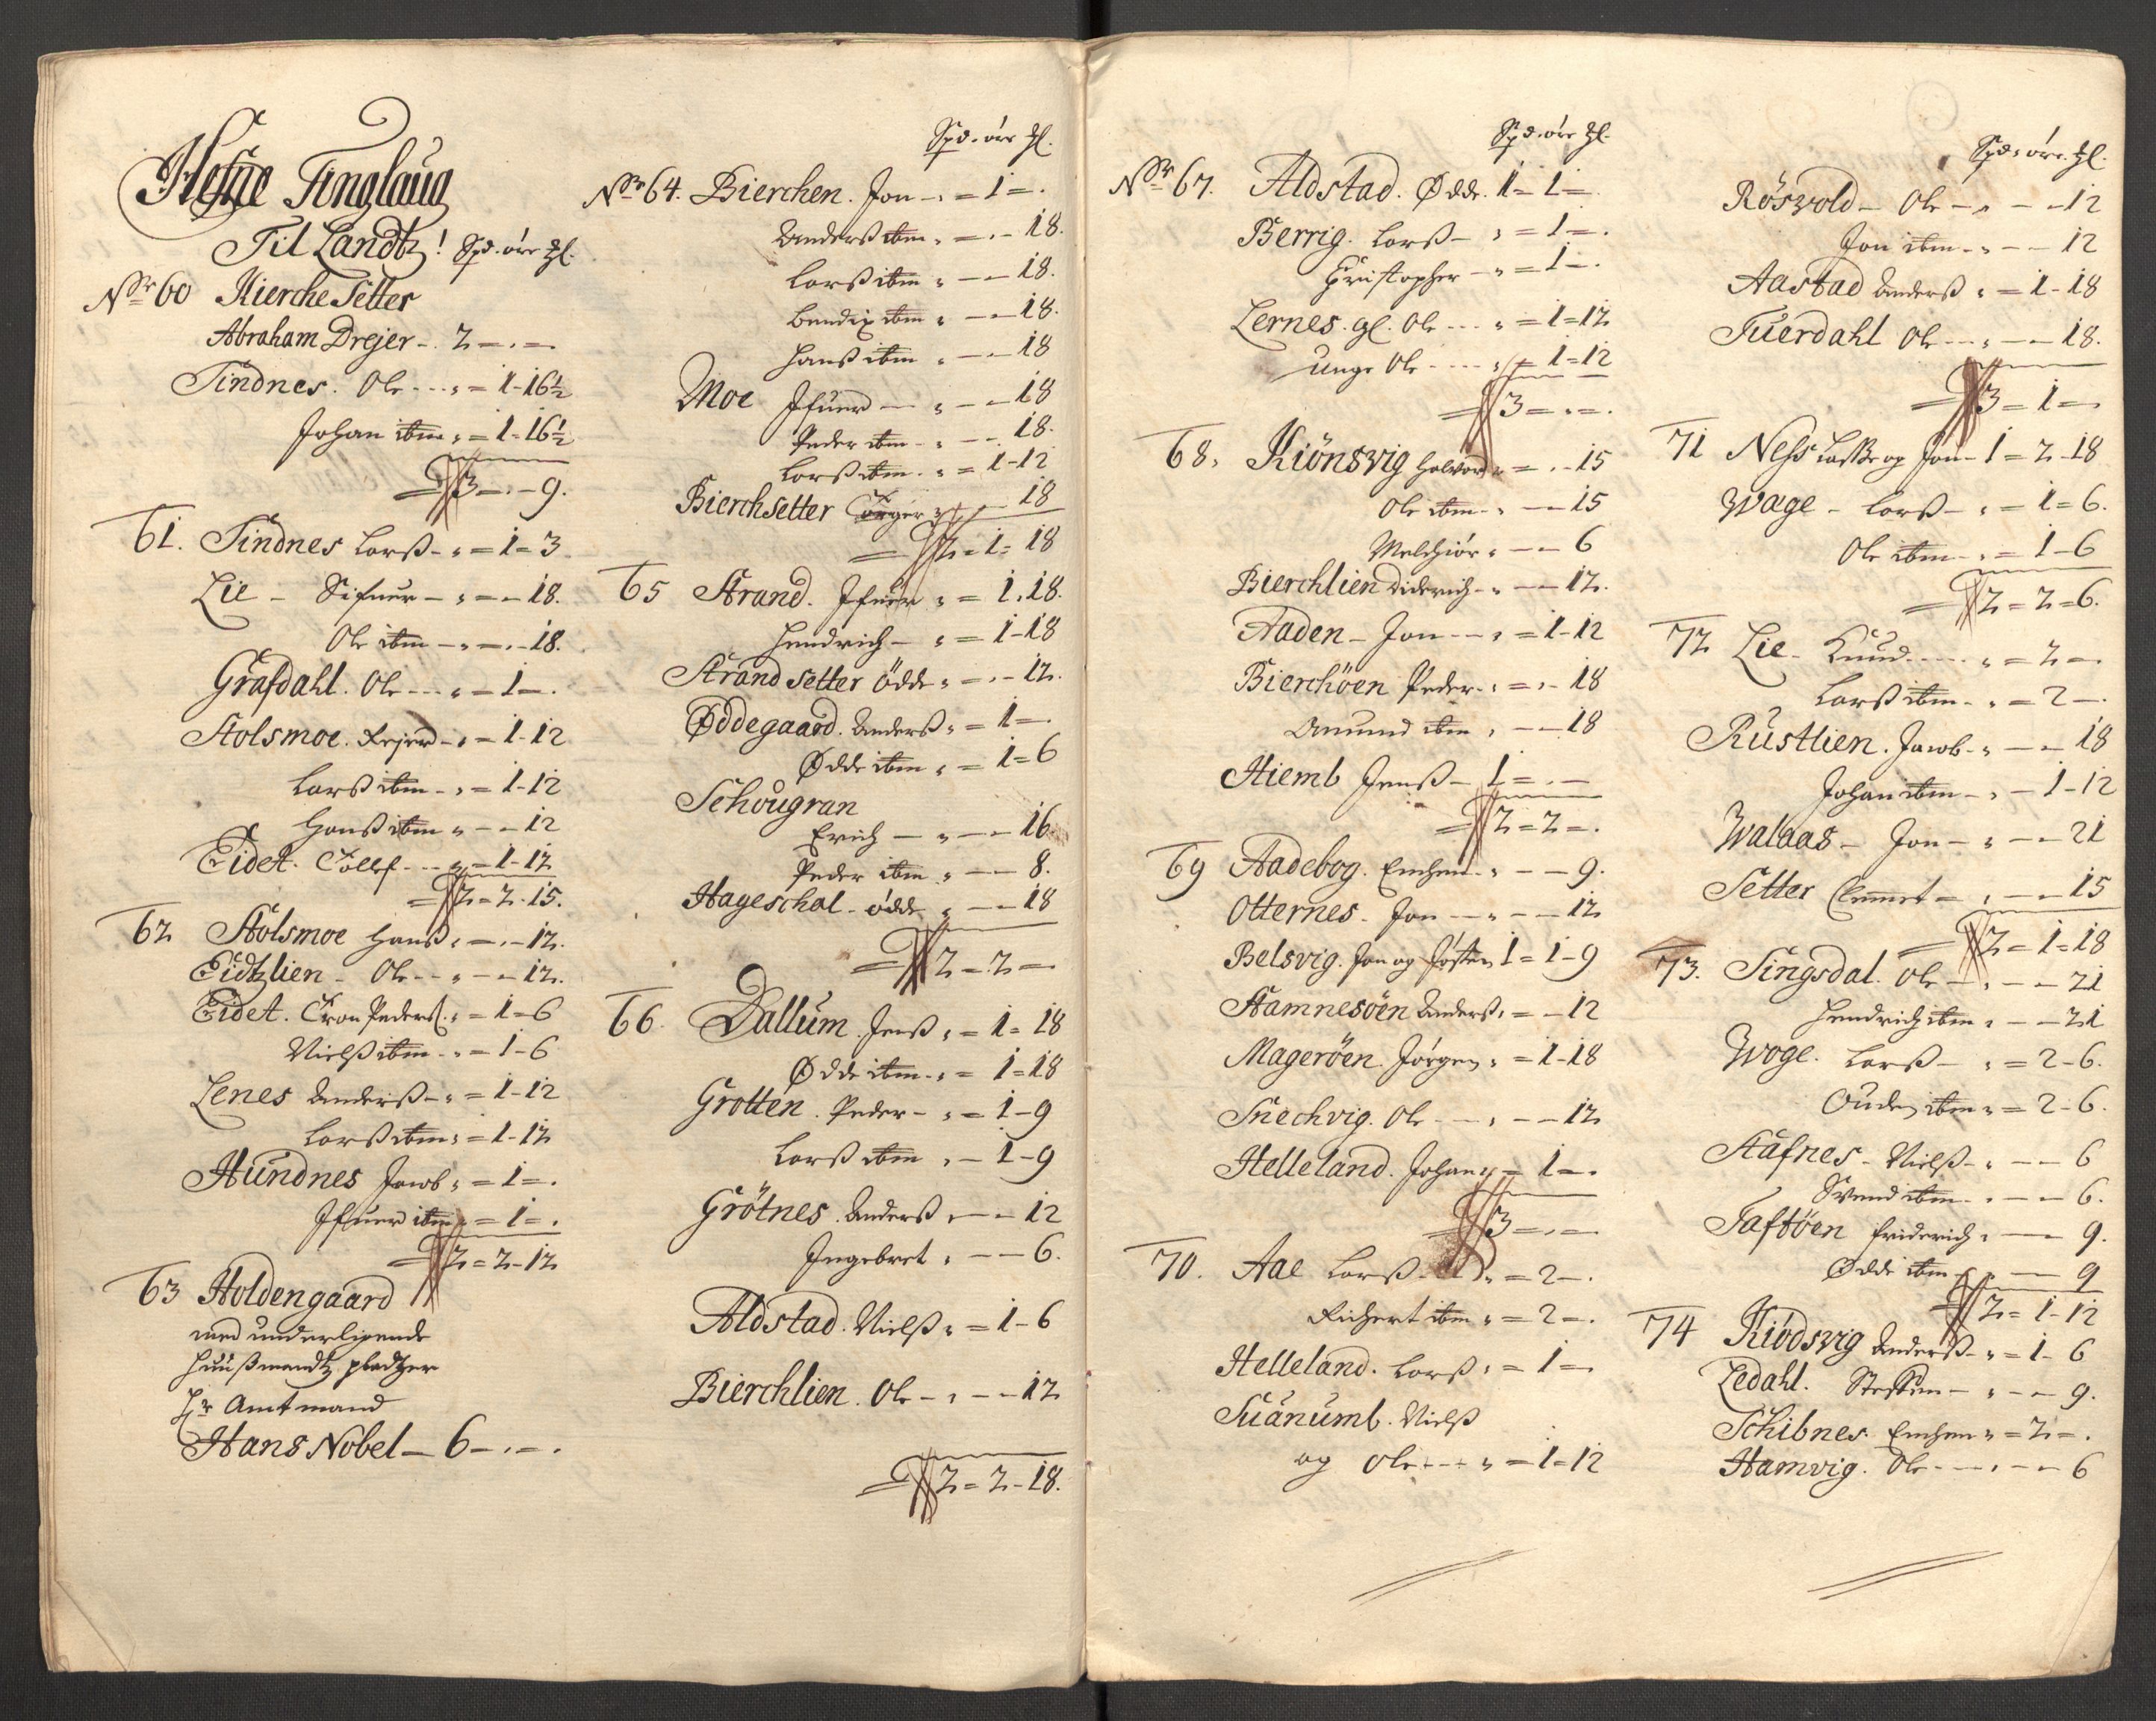 Hefne Tinglaug
Til Landtz! Spd. ører ħl.
Nr 60 Kierche Setter
Abraham Drejer - 2 - . -
Tindnes. Ole --- „ = 1 - 16½
Johan ibm „ = 1 - 16½
= 3 - . - 9.
61. Tindnes Larß - „ = 1 = 3
Lie - Sifuer - „ = - 18.
Ole ibm - „ = . - 18.
Grafdahl. Ole --- „ = 1 - .
Stolsmoe. Rejer - „ = 1 - 12
Larß ibm - „ = 1 - 12
Hanß ibm „ - - 12
Eidet. Tollf --- „ = 1 - 12
= 2 = 2 - 15.
62 Stolsmoe Hanß „ = . - 12.
Eidtzlien - Ole -- „ - - 12.
Eidet. Tron Pederß. „ = 1 = 6
Nielß ibm - „ = 1 - 6
Lenes Anderß - „ = 1 - 12
Larß ibm „ = 1 - 12
Hundnes Jacob „ = 1 = .
Ifuer ibm „ = 1 = .
= 2 = 2 - 12
63 Holdengaard
med underligende
Huußmandtz pladtzer
Hr Amtmand
Hans Nobel - 6 - . - .
Spd. ører ħl.
Nr 64. Bierchen. Jon - „ = 1 = .
Anderß ibm „ = . - 18.
Larß ibm „ - - 18.
Bendix ibm „ - - 18.
Hanß ibm „ - - 18
Moe Ifuer - „ - - 18
Peder ibm - „ - - 18.
Larß ibm. „ = 1 - 12
Bierchsetter Torger „ - - 18
= 2 = 1 = 18
65 Strand. Ifuer „ = 1. 18.
Hendrich - „ = 1 - 18
Strand setter Ødde „ = . - 12.
Øddegaard. Anderß „ = 1 = .
Ødde ibm „ = 1 = 6
Schougran
Erich - „ - - 16
Peder ibm „ - - 8.
Hageschal - ødde „ - - 18
= 2 = 2 =
66. Dallum. Jenß „ = 1 = 18
Ødde ibm. „ = 1 = 18
Grotten. Peder - „ = 1 - 9
Larß ibm „ - 1 - 9
Grötnes. Anderß „ - - 12
Ingebret „ - - 6.
Aldstad. Nielß „ = 1 - 6
Bierchlien. Ole - „ - - 12
= 2 = 2 - 18.
Spd. ører ħl.
Nr 67. Aldstad. Ødde. 1 = 1 =
Berrig. Larß - „ = 1 = .
Christopher - „ = 1 - .
Lernes. gl. Ole --- „ = 1 = 12
unge Ole ---- „ = 1 = 12
= 3 = . = .
68. Kiönsvig Halvor „ = . - 15
Ole ibm - „ - - 15
Melchiör „ - - 6
Bierchlien Diderich - „ - - 12.
Aaden - Jon -- „ = 1 - 12
Bierchöen Peder. „ = „ - 18
Amund ibm „ - - 18
Hiemb Jenß - 1 = . -
= 2 = 2 = .
69 Aadebog. Enchen - „ - - 9.
Otternes - Jon -- „ - - 12
Belsvig. Jon og Jösten 1 = 1 - 9
Stamnesöen Anderß „ = - 12
Magerøen. Jörgen „ = 1 - 18
Snechvig. Ole --- „ - - 12
Helleland. Johan „ = 1 - .
= 3 - . -
70. Aae Larß - „ = 2 - .
Richert ibm „ = 2 - .
Helleland. Larß „ = 1 - .
Suanumb. Nielß
og Ole --- „ = 1 = 12
Spd. ører ħl.
Rösvold - Ole - „ - - 12
Jon ibm - „ - - 12
Aastad Anderß „ = 1 - 18
Tuerdahl Ole -- „ - - 18.
= 3 = 1 =
71 Nehs Laße og Jon - 1 = 2 - 18
Wage - Larß - „ = 1 = 6.
Ole ibm - „ = 1 - 6
= 2 = 2 = 6.
72 Lie - Knud ---- „ = 2 - .
Larß ibm - „ = 2 - .
Rustlien. Jacob - „ - - 18
Johan ibm - „ - 1 - 12
Walaas - Jon - „ - - 21
Setter Clemet - „ - - 15
= 2 = 1 = 18
73. Singsdal. Ole - „ - - 21
Hendrich ibm „ - - 21
Woge. Larß - „ = 2 - 6.
Ouden ibm „ = 2 - 6.
Stafnes - Nielß - „ - - 6
Svend ibm „ - - 6.
Taftöen Friderich „ - - 9.
Ødde ibm „ - - 9
= 2 = 1 - 12
74 Kiödsvig Anderß - „ = 1 - 6
Ledahl. Steffen - „ - - 9.
Schibnes. Enchen „ = 2 = .
Hamvig. Ole --- „ - - 6